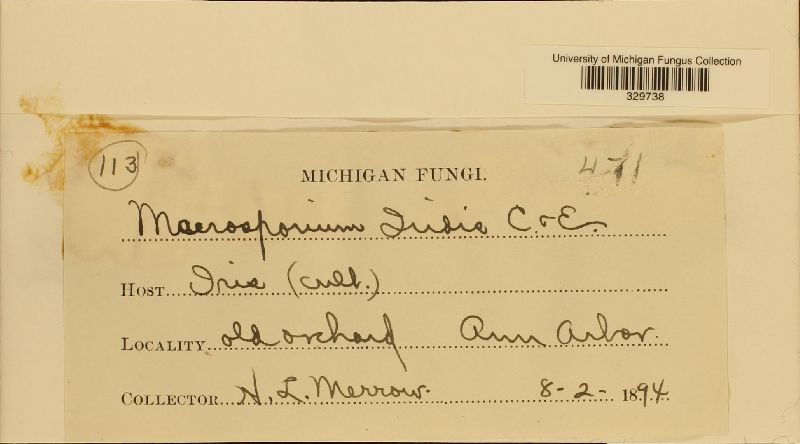 University of Michigan Fungus Collection
329738
113
MICHIGAN FUNGI.
471
Macrosporium Iridis C. & E.
HOST Iris (cult.)
LOCALITY old orchard Ann Arbor.
COLLECTOR H. L. Merrow. 8-2-1894.